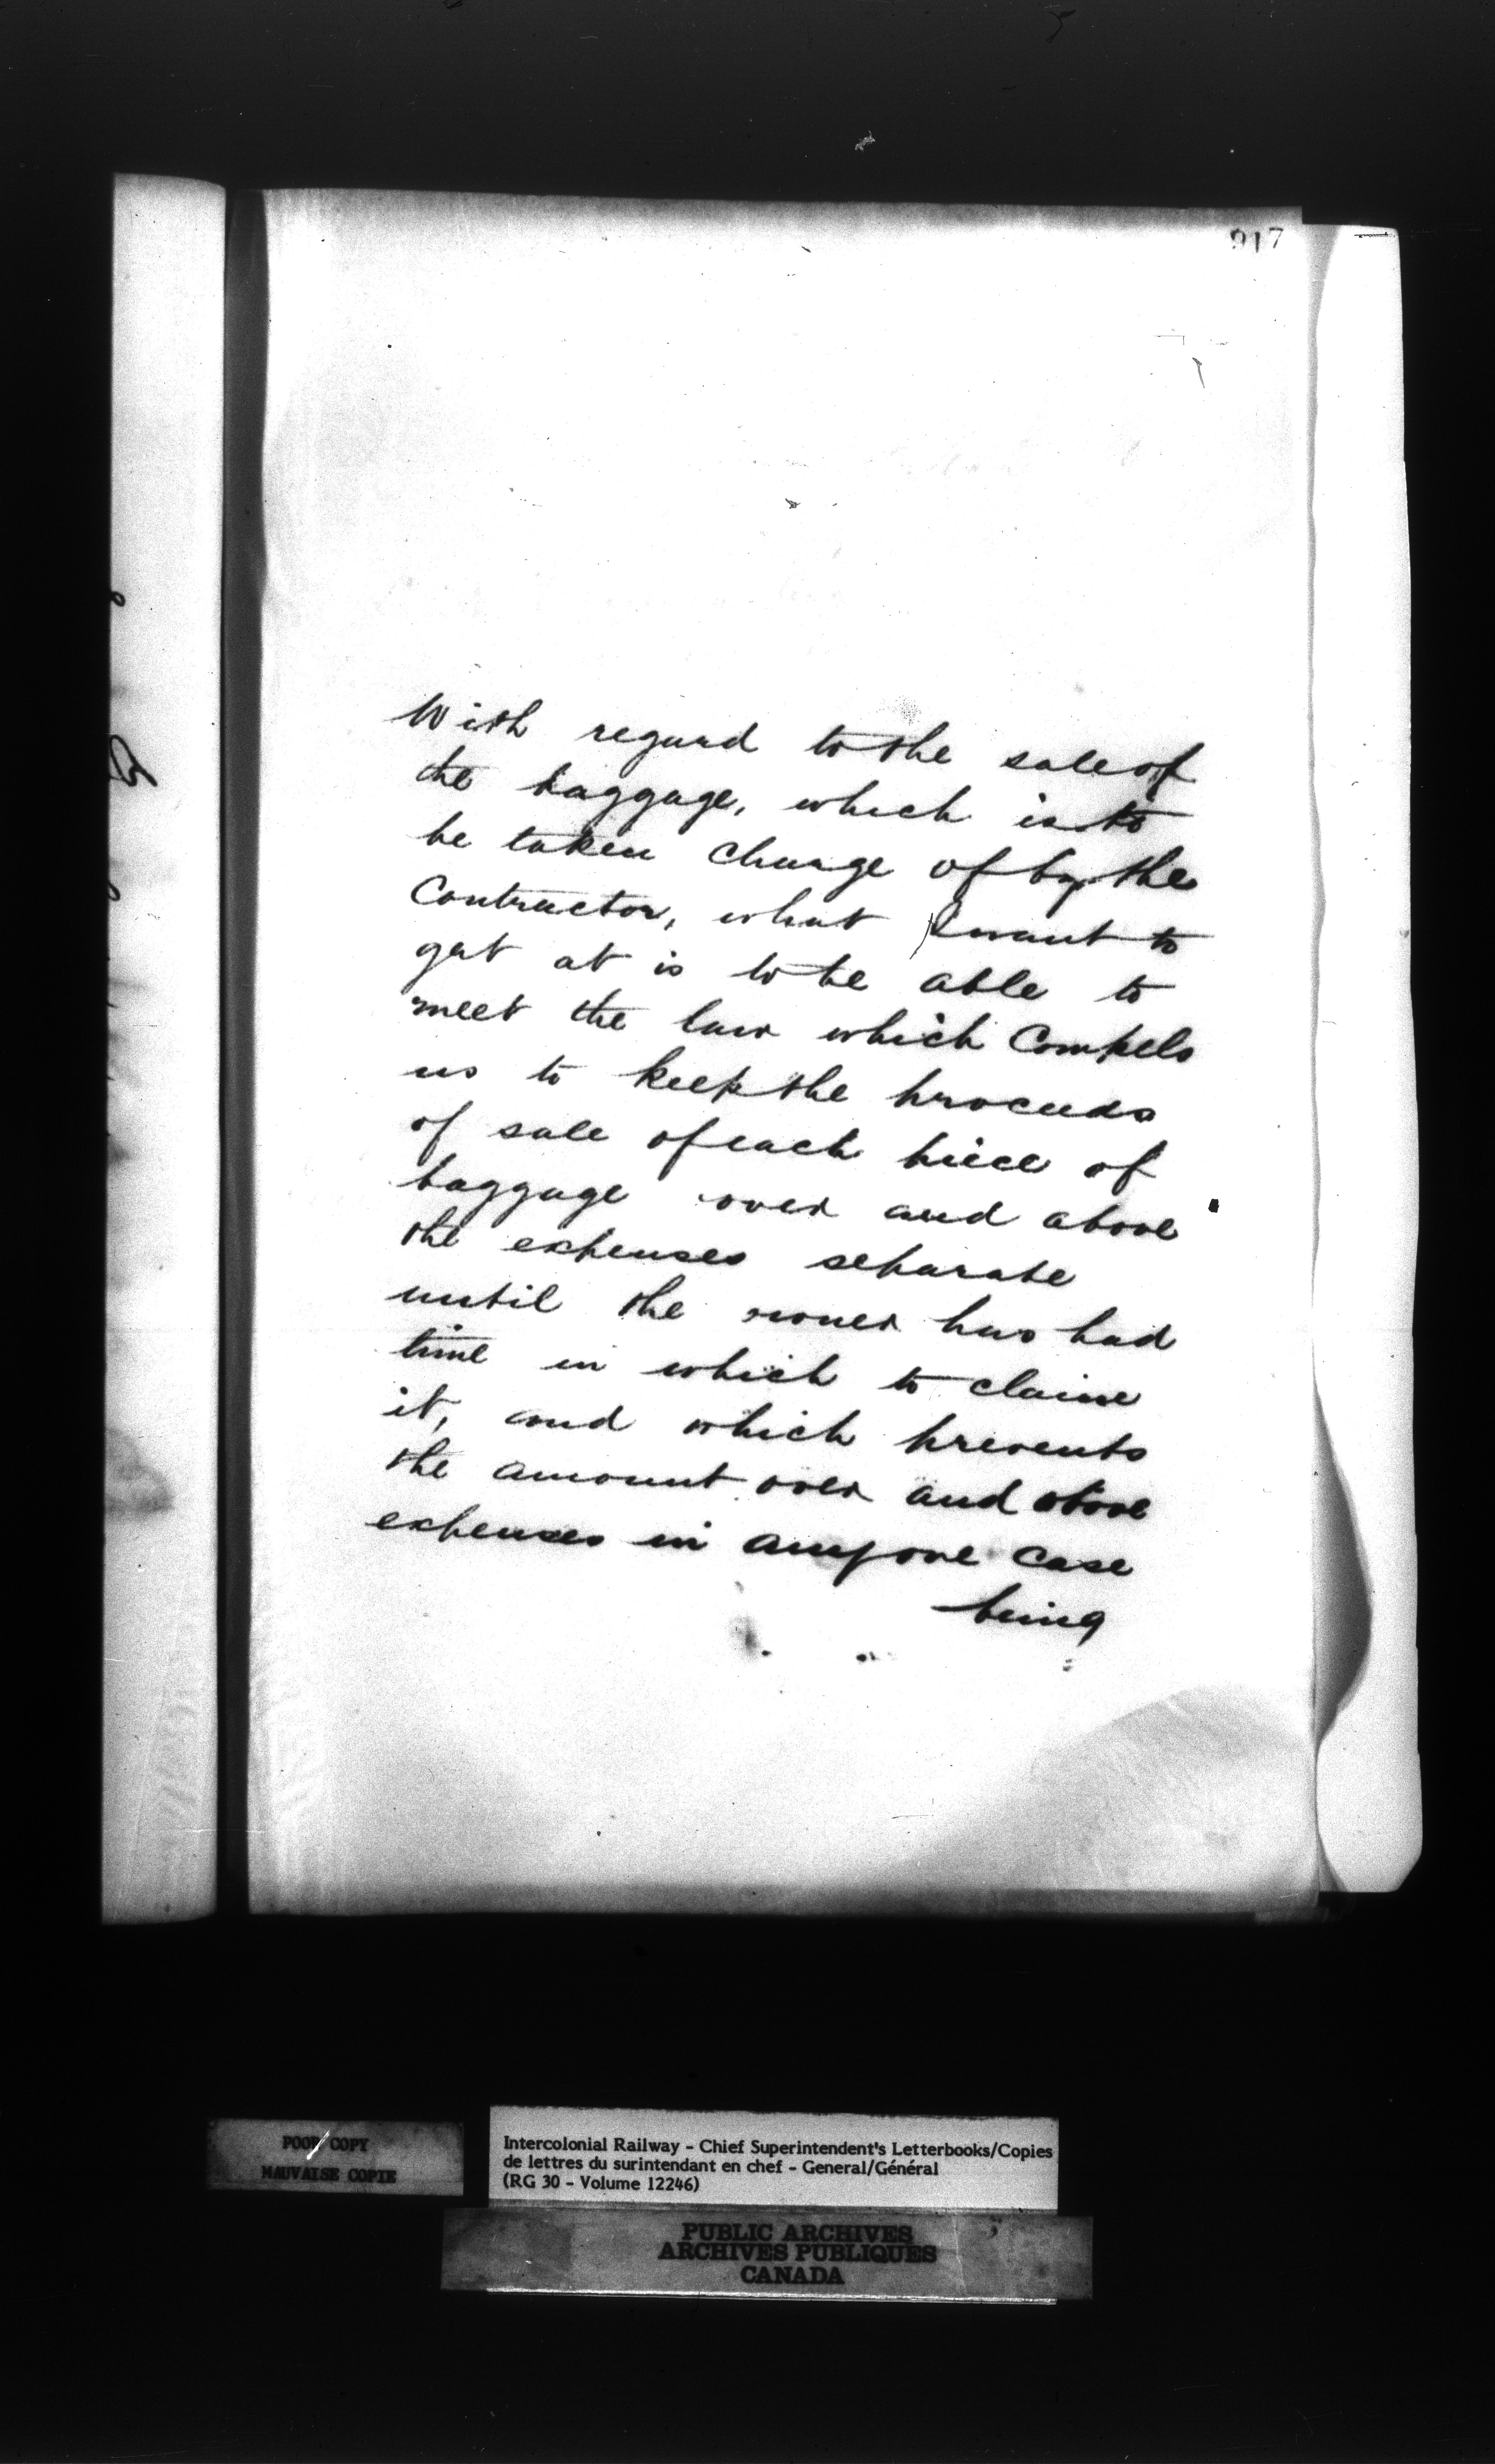 917
With regard to the sale of
the baggage, which is to
be taken charge of by the
Contractor, what I want to
get at is to be able to
meet the law which Compels
us to keep the proceeds
of sale of each piece of
baggage over and above
the expenses separate
until the owner has had
time in which to claim
it, and which prevents
the amount over and above
expenses in any one case
being
POOR COPY
MAUVAISE COPIE
Intercolonial Railway - Chief Superintendent's Letterbooks/Copies
de lettres du surintendant en chef - General/Général
(RG 30 - Volume 12246)
PUBLIC ARCHIVES
ARCHIVES PUBLIQUES
CANADA